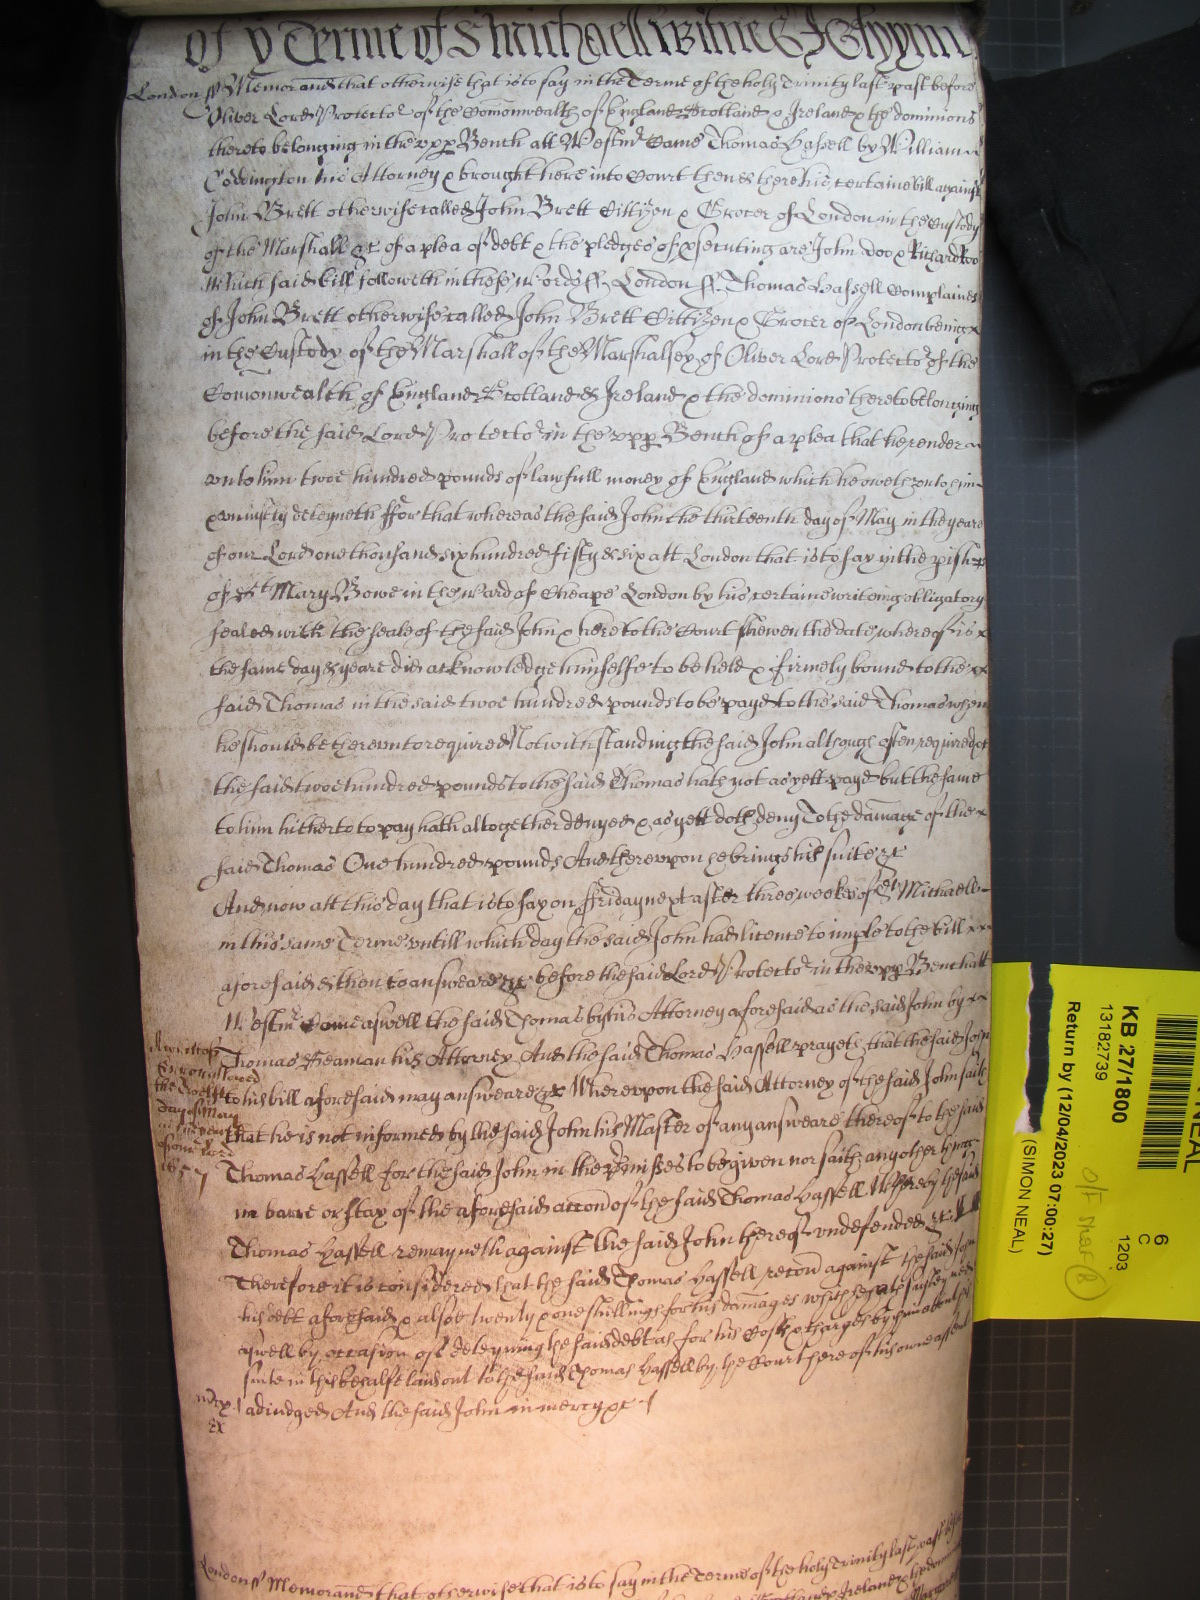 of ye Terme of St Michaell witnes J Glynn
London ss Memorand that otherwise that is to say in the Terme of the holy Trinity last past before
Oliver Lord Protector of the Comonwealth of England Scotland & Ireland & the dominions
thereto belonging in the upp Bench att Westmr Came Thomas Hassell by William
Coddington his Attorney & brought here into Court then & there his certaine bill against
John Brett otherwise called John Brett Cittizen & Grocer of London in the Custody
of the Marshall &c of a plea of debt & the pledges of psecuting are John doo & Richard Roo
Which said bill followeth in these words ss London ss Thomas Hassell Complaines
of John Brett otherwise called John Brett Cittizen & Grocer of London being
in the Custody of the Marshall of the Marshalsey of Oliver Lord Protector of the
Comonwealth of England Scotland & Ireland & the dominions thereto belonging
before the said Lord Protector in the upp Bench of a plea that he render
unto him twoe hundred pounds of lawfull money of England which he oweth unto him
& uniustly deteyneth ffor that whereas the said John the thirteenth day of May in the yeare
of our Lord one thousand six hundred fifty & six att London that is to say in the pish
of St Mary Bowe in the Ward of Cheape London by his certaine writeing obligatory
sealed with the seale of the said John & here to the Court shewen the date whereof is
the same day & yeare did acknowledge himselfe to be held & firmely bound to the
said Thomas in the said twoe hundred pounds to be payd to the said Thomas when
he should be thereunto required Notwithstanding the said John although often required &c
the said twoe hundred pounds to the said Thomas hath not as yett payd but the same
to him hitherto to pay hath altogether denyed & as yett doth deny To the damage of the
said Thomas One hundred pounds And thereupon he brings his suite &c
And now att this day that is to say on ffriday next after three weekes of St Michaell
in this same Terme untill which day the said John had licence to imple to the bill
aforesaid & then to answeare &c before the said Lord Protector in the upp Bench att
Westmr Come aswell the said Thomas by his Attorney aforesaid as the said John by
Thomas Seaman his Attorney And the said Thomas Hassell prayeth that the said John
to his bill aforesaid may answeare &c Whereupon the said Attorney of the said John saith
that he is not informed by the said John his Master of any answeare thereof to the said
Thomas Hassell for the said John in the pmisses to be given nor saith any other thing
in barre or stay of the aforesaid accon of the said Thomas Hassell Whereby the said
Thomas Hassell remayneth against the said John thereof undefended &c
Therefore it is considered that the said Thomas Hassell recon against the said John
his debt aforesaid & alsoe twenty & one shillings for his damages which he hath susteyned
aswell by occasion of deteyning the said debt as for his Costs & charges by him about his
suite in this behalfe laid out to the said Thomas Hassell by the Court here of his owne assent
adiudged And the said John in mercy &c
day of May
1657
London ss Memorand that otherwise that is to say in the Terme of the holy Trinity last past
KB 27/1800
13182739
Return by (12/04/2023 07:00:27)
(SIMON NEAL)
NEAL
6
C
1203